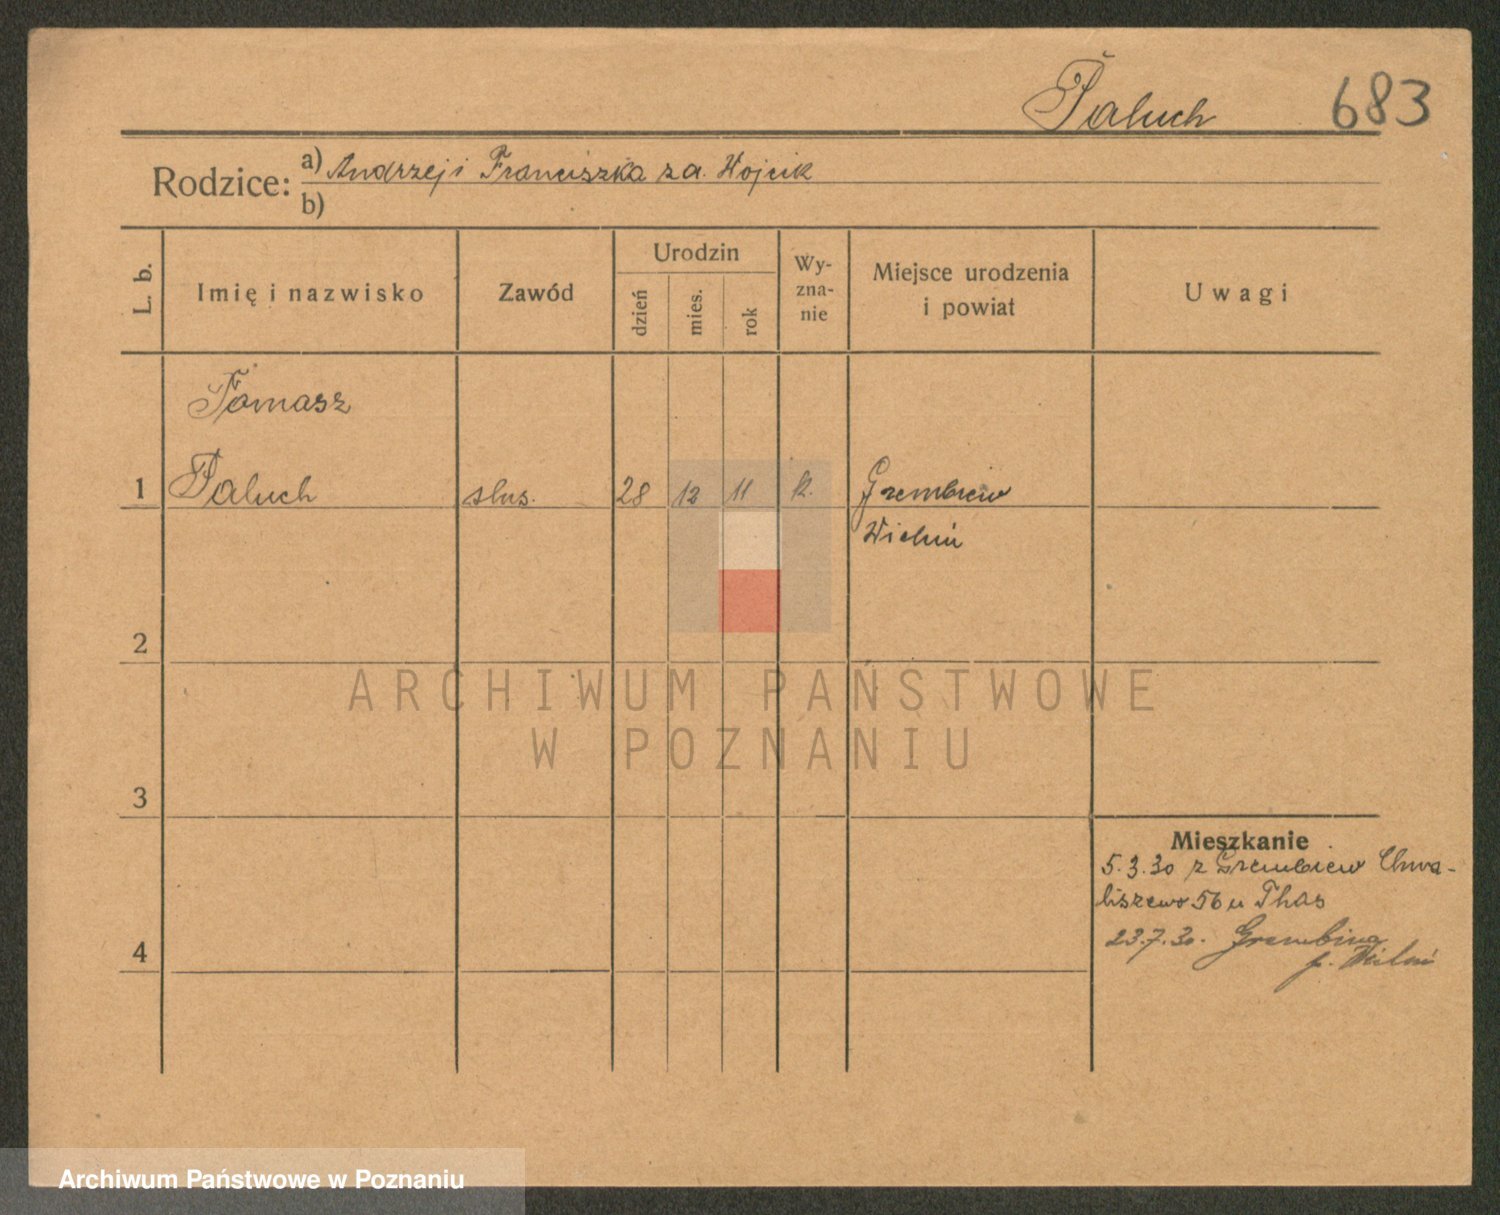 Paluch 683
Rodzice: a) Andrzej i Franciszka za. Wojcik
b)
L. b. Imię i nazwisko Zawód Urodzin dzień mies. rok Wy-
zna-
nie Miejsce urodzenia
i powiat Uwagi
Tomasz
1 Paluch słus. 28 12 11 k. Grembiew
Wieluń
2
ARCHIWUM PAŃSTWOWE
W POZNANIU
3
Mieszkanie
5.3.30 z Grembiew Chwa-
liszewo 56 u Thas
23.7.30. 
p.
4
Archiwum Państwowe w Poznaniu